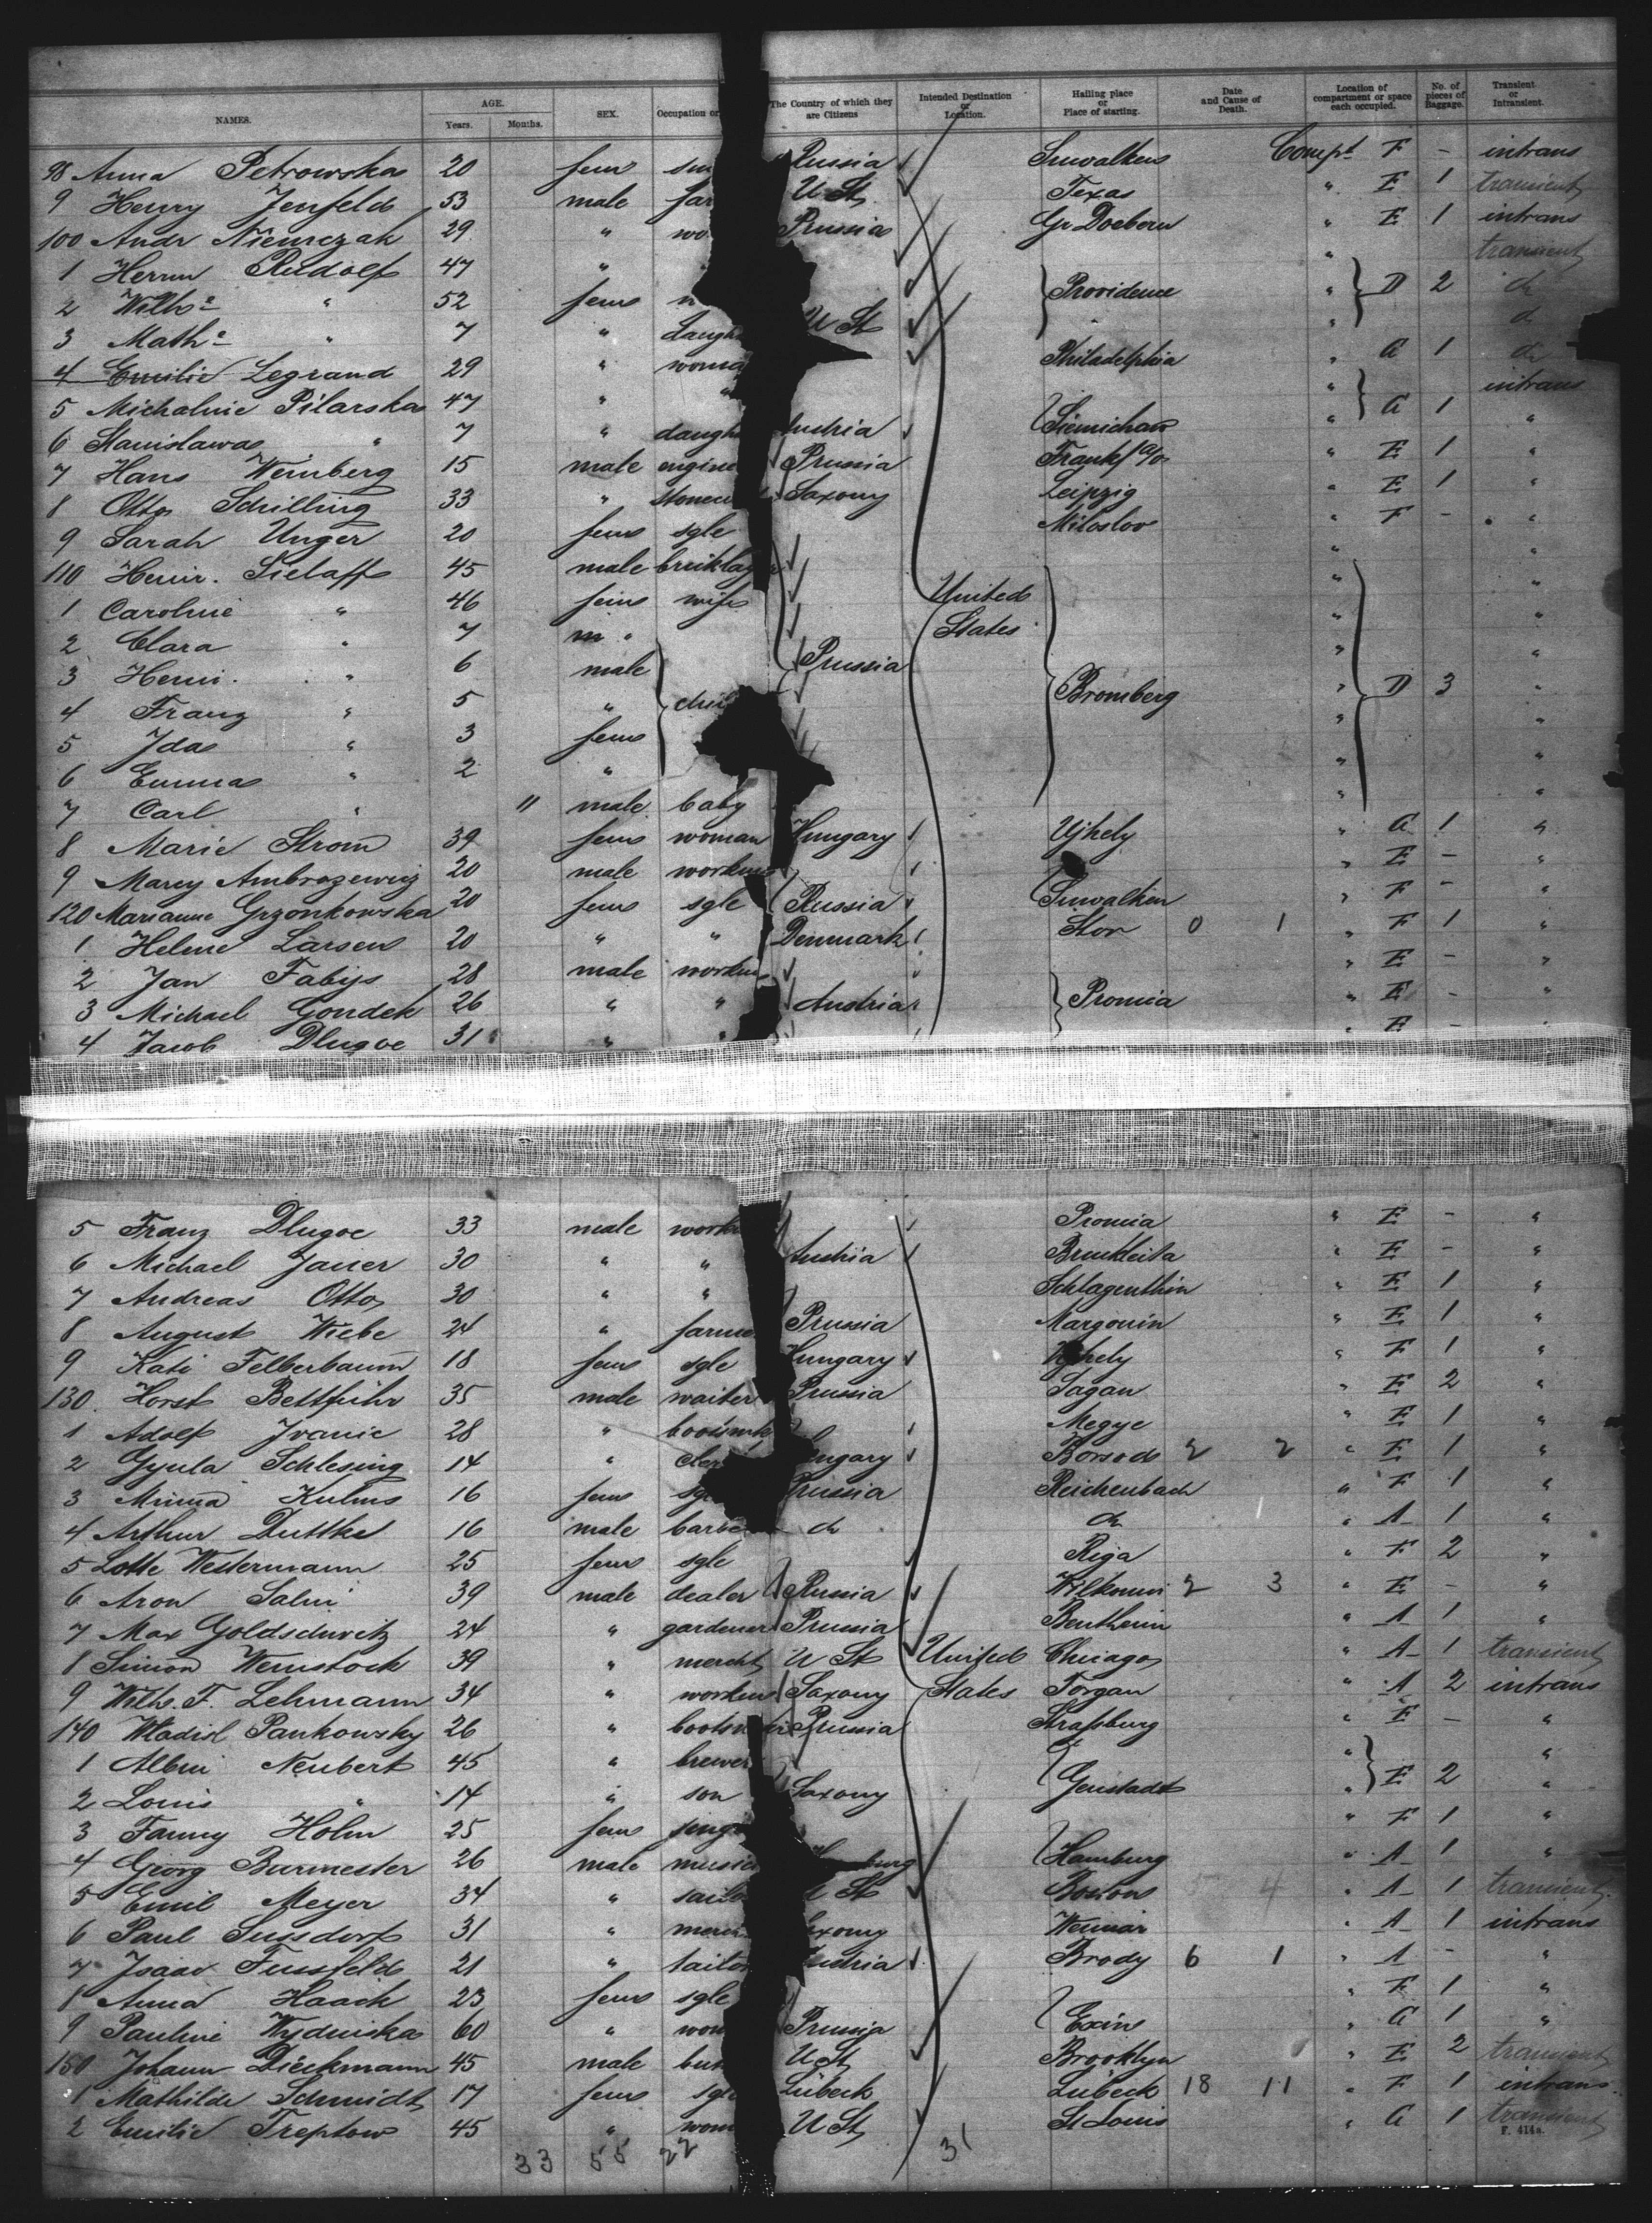 NAMES. AGE. Years. Months. SEX. Occupation or The Country of which they are Citizens Intended Destination or Location. Hailing place or Place of starting. Date and Cause of Death. Location of compartment or space each occupied. No. of pieces of Baggage. Transient or Intransient.
98 Anna Petrowska 20 fem Russia Suwalken Compt F - intrans
9 Henry Jenfeld 53 male far U St Texas " E 1 transient
100 Andr Niemczak 29 " wo Prussia Gr Doebern " E 1 intrans
1 Herm Rudolf 47 " " transient
2 Wilhe " 52 fem Providence " D 2 do
3 Mathe " 7 " daugh U St " do
4 Emilie Legrand 29 " woma Philadelphia " G 1 do
5 Michaline Pilarska 47 " " " intrans
6 Stanislawa " 7 " daugh Austria Siemichau " G 1 "
7 Hans Weinberg 15 male engine Prussia Frankf a/o " E 1 "
8 Otto Schilling 33 " stonecu Saxony Leipzig " E 1 "
9 Sarah Unger 20 fem sgle Miloslov " F - "
110 Heinr. Sielaff 45 male bricklay " "
1 Caroline " 46 fem wife United " "
2 Clara " 7 " States " "
3 Heinr. " 6 male Prussia " "
4 Franz " 5 " chil Bromberg " D 3 "
5 Ida " 3 fem " "
6 Emma " 2 " " "
7 Carl " 11 male baby " "
8 Marie Strom 39 fem woman Hungary Ujhely " G 1 "
9 Marcy Ambrozewicz 20 male workm " E - "
120 Marianne Grzonkowska 20 fem sgle Russia Suwalken " F - "
1 Helene Larsen 20 " " Denmark Stor 0 1 " F 1 "
2 Jan Fabijs 28 male workm " E - "
3 Michael Gondek 26 " " Austria Promia " E - "
4 Jacob Dlugoe 31 " " E - "
5 Franz Dlugoe 33 male workm Promia " E - "
6 Michael Janer 30 " " Austria " E - "
7 Andreas Otto 30 " " Schlagenthin " E 1 "
8 August Wiebe 24 " farme Prussia Margonin " E 1 "
9 Kati Felberbaum 18 fem sgle Hungary Ujhely " F 1 "
130 Horst Bettführ 35 male waiter Prussia Sagan " E 2 "
1 Adolf Ivanic 28 " bootmk Megye " E 1 "
2 Gyula Schlesing 14 " cler ungary Borsod 2 2 " E 1 "
3 Minna Kulms 16 fem sgl Prussia Reichenbach " F 1 "
4 Arthur Duttke 16 male barbe do do " A 1 "
5 Lotte Westermann 25 fem sgle Riga " F 2 "
6 Aron Salni 39 male dealer Russia Wilkomi 2 3 " E - "
7 Max Goldschmitz 24 " gardener Prussia Bentheim " A 1 "
8 Simon Weinstock 39 " mercht U St United Chicago " A 1 transient
9 Wilh. F. Lehmann 34 " workm Saxony States Torgau " A 2 intrans
140 Wladisl Pankowsky 26 " bootm Prussia Strassburg " E - "
1 Albin Neubert 45 " brewer " "
2 Louis " 14 " son Saxony " E 2 "
3 Fanny Holm 25 fem sing " F 1 "
4 Georg Burmester 26 male music burg Hamburg " A 1 "
5 Emil Meyer 34 " sailo U St Boston 5 4 " A 1 transient
6 Paul Sussdorf 31 " merch axony Weimar " A 1 intrans
7 Isaac Fussfeld 21 " tailo ustria Brody 6 1 " A - "
8 Anna Haack 23 fem sgle " F 1 "
9 Pauline Wydniska 60 " wom Prussia Exin " G 1 "
150 Johann Dieckmann 45 male but U St Brooklyn " E 2 transient
1 Mathilde Schmidt 17 fem sgl Lübeck Lübeck 18 11 " F 1 intrans
2 Emilie Treptow 45 " wom U St St Louis " G 1 transient
F. 414a.
33 55 22 31